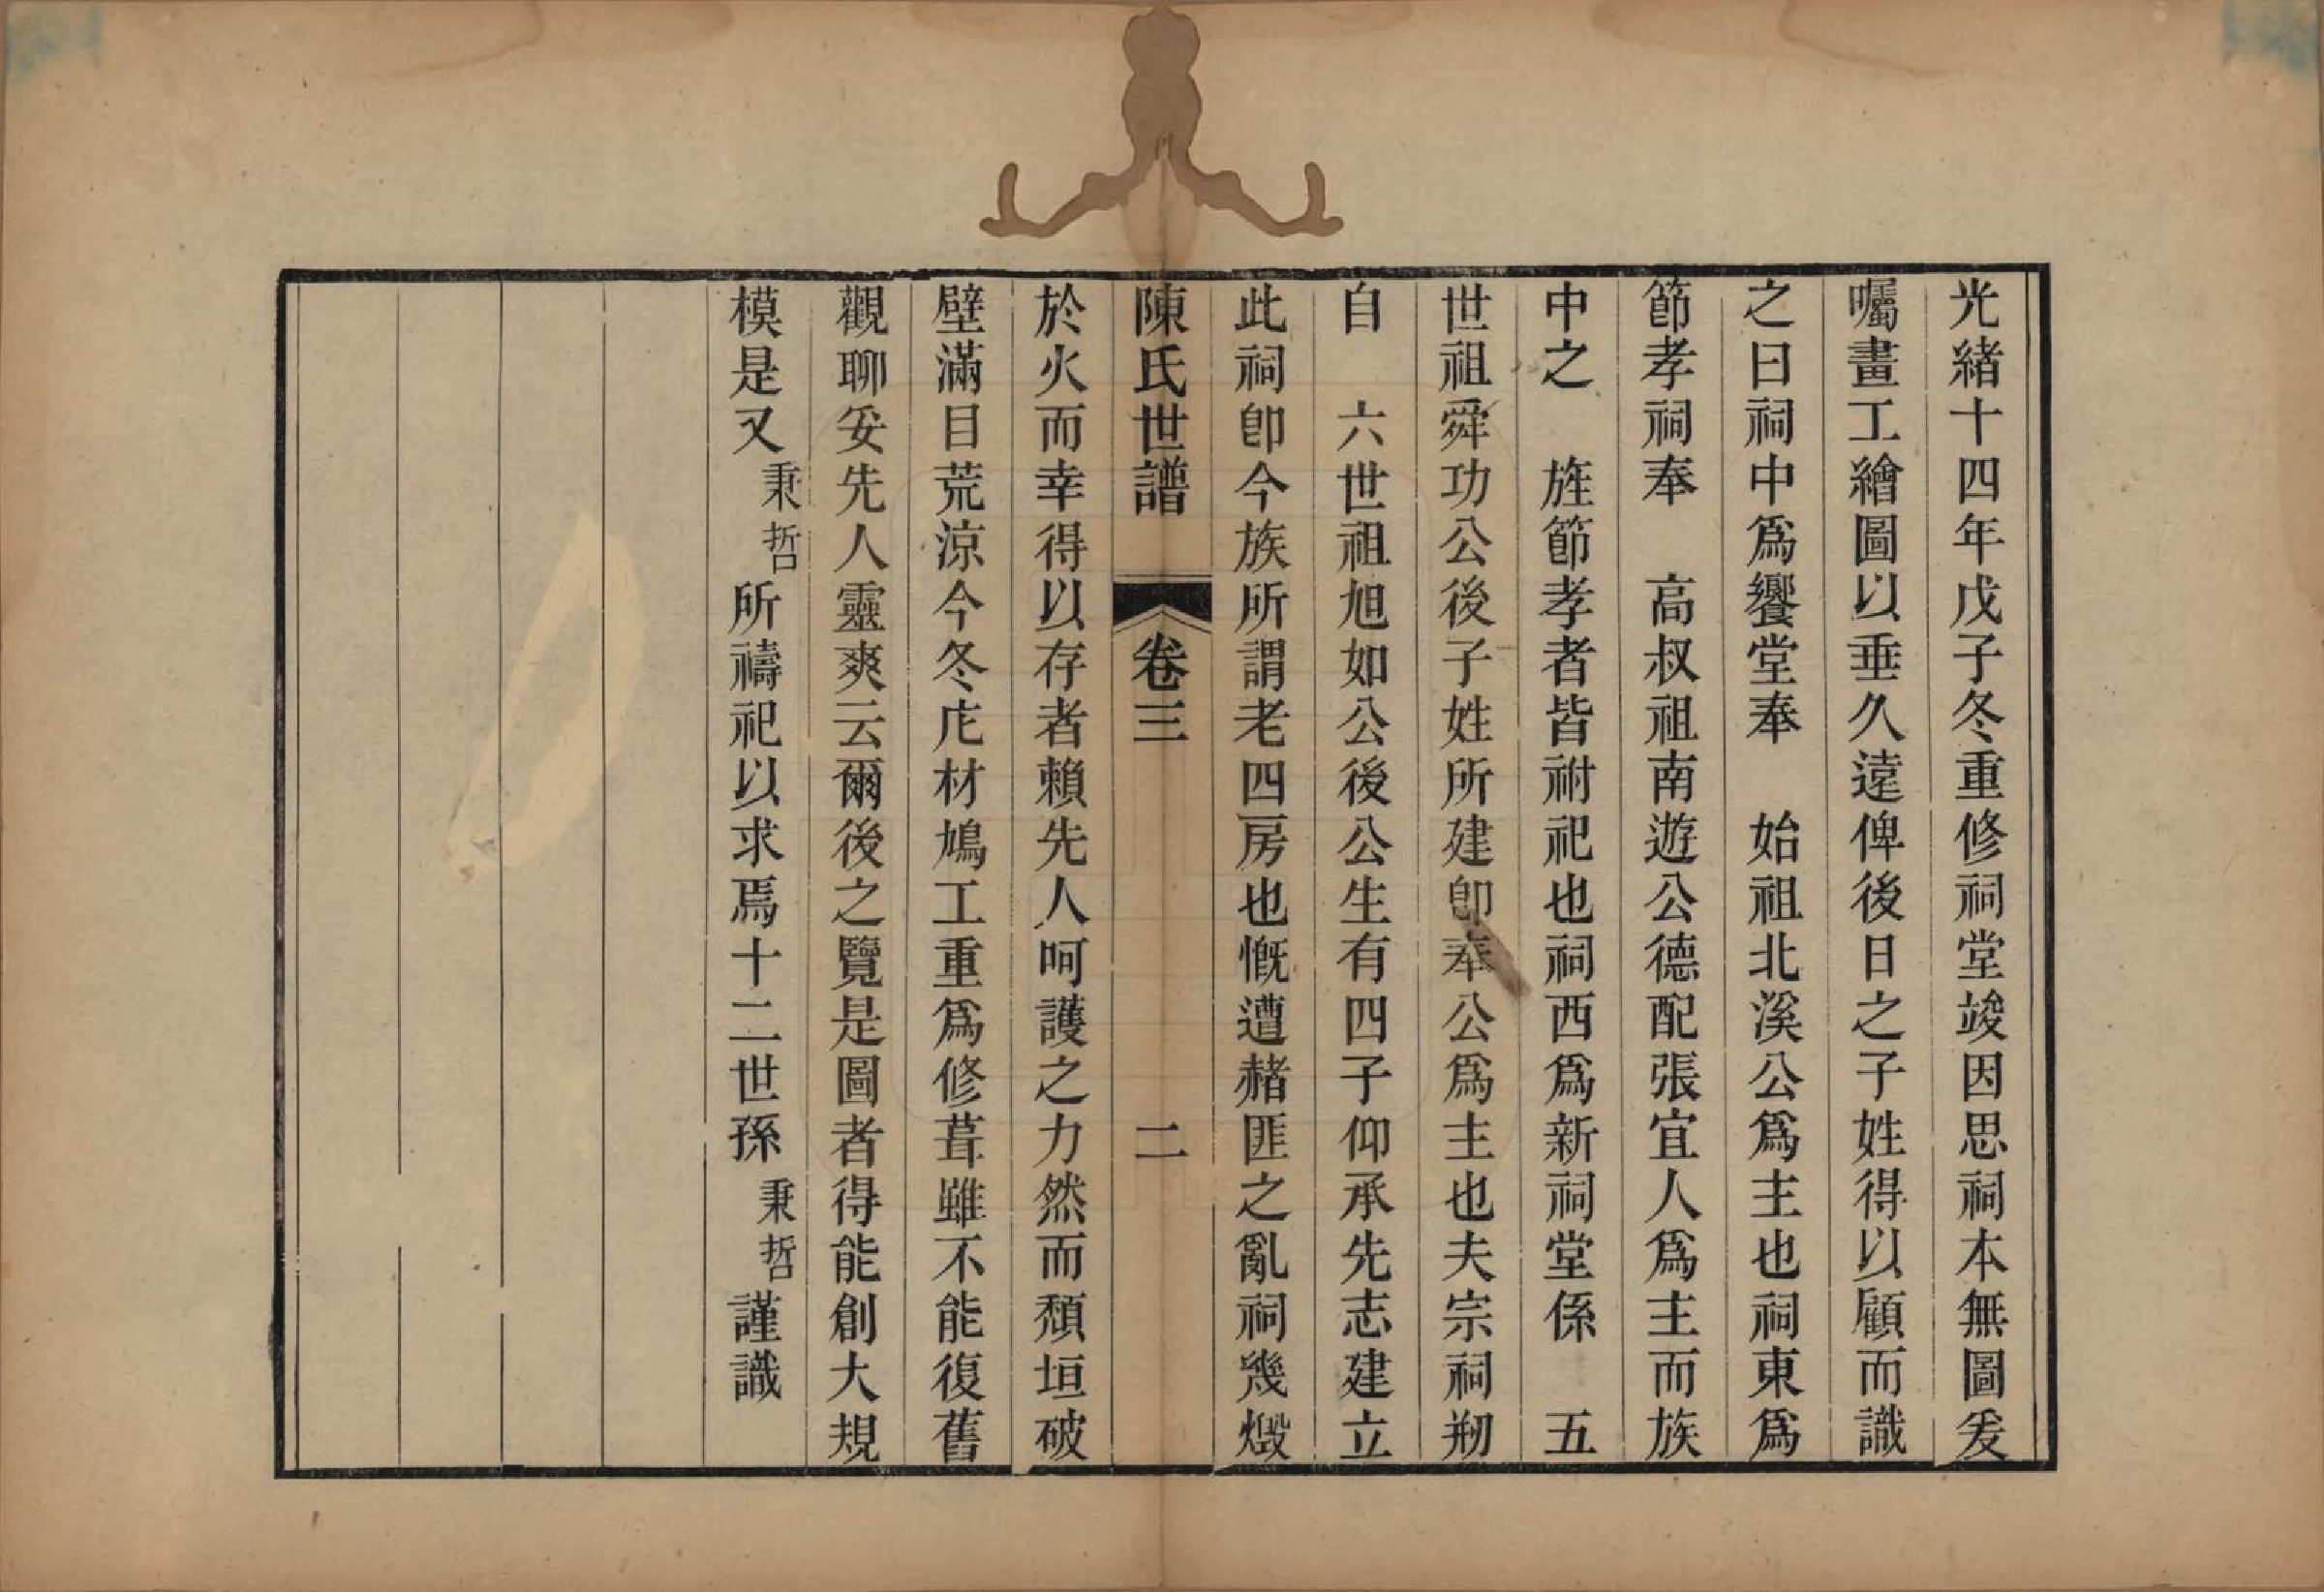 光緒十四年戊子冬重修祠堂竣因思祠本無圖爰
囑畫工繪圖以垂久遠俾後日之子姓得以顧而識
之曰祠中爲饗堂奉　始祖北溪公爲主也祠東爲
節孝祠奉　高叔祖南遊公德配張宜人爲主而族
中之　旌節孝者皆祔祀也祠西爲新祠堂係　五
世祖舜功公後子姓所建卽奉公爲主也夫宗祠剏
自　六世祖旭如公後公生有四子仰承先志建立
此祠卽今族所謂老四房也慨遭赭匪之亂祠幾燬
陳氏世譜　卷三　二
於火而幸得以存者賴先人呵護之力然而頹垣破
壁滿目荒涼今冬庀材鳩工重爲修葺雖不能復舊
觀聊妥先人靈爽云爾後之覽是圖者得能創大規
模是又秉哲所禱祀以求焉十二世孫秉哲謹識